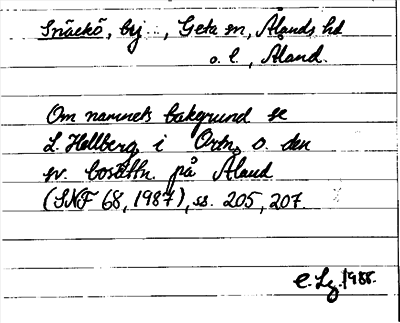 Snäckö, by, Geta sn, Ålands hd
o. l., Åland.
Om namnets bakgrund se
L. Hellberg i Ortn. o. den
sv. bosättn. på Åland
(SNF 68, 1987), ss. 205, 207.
C. Lg. 1988.